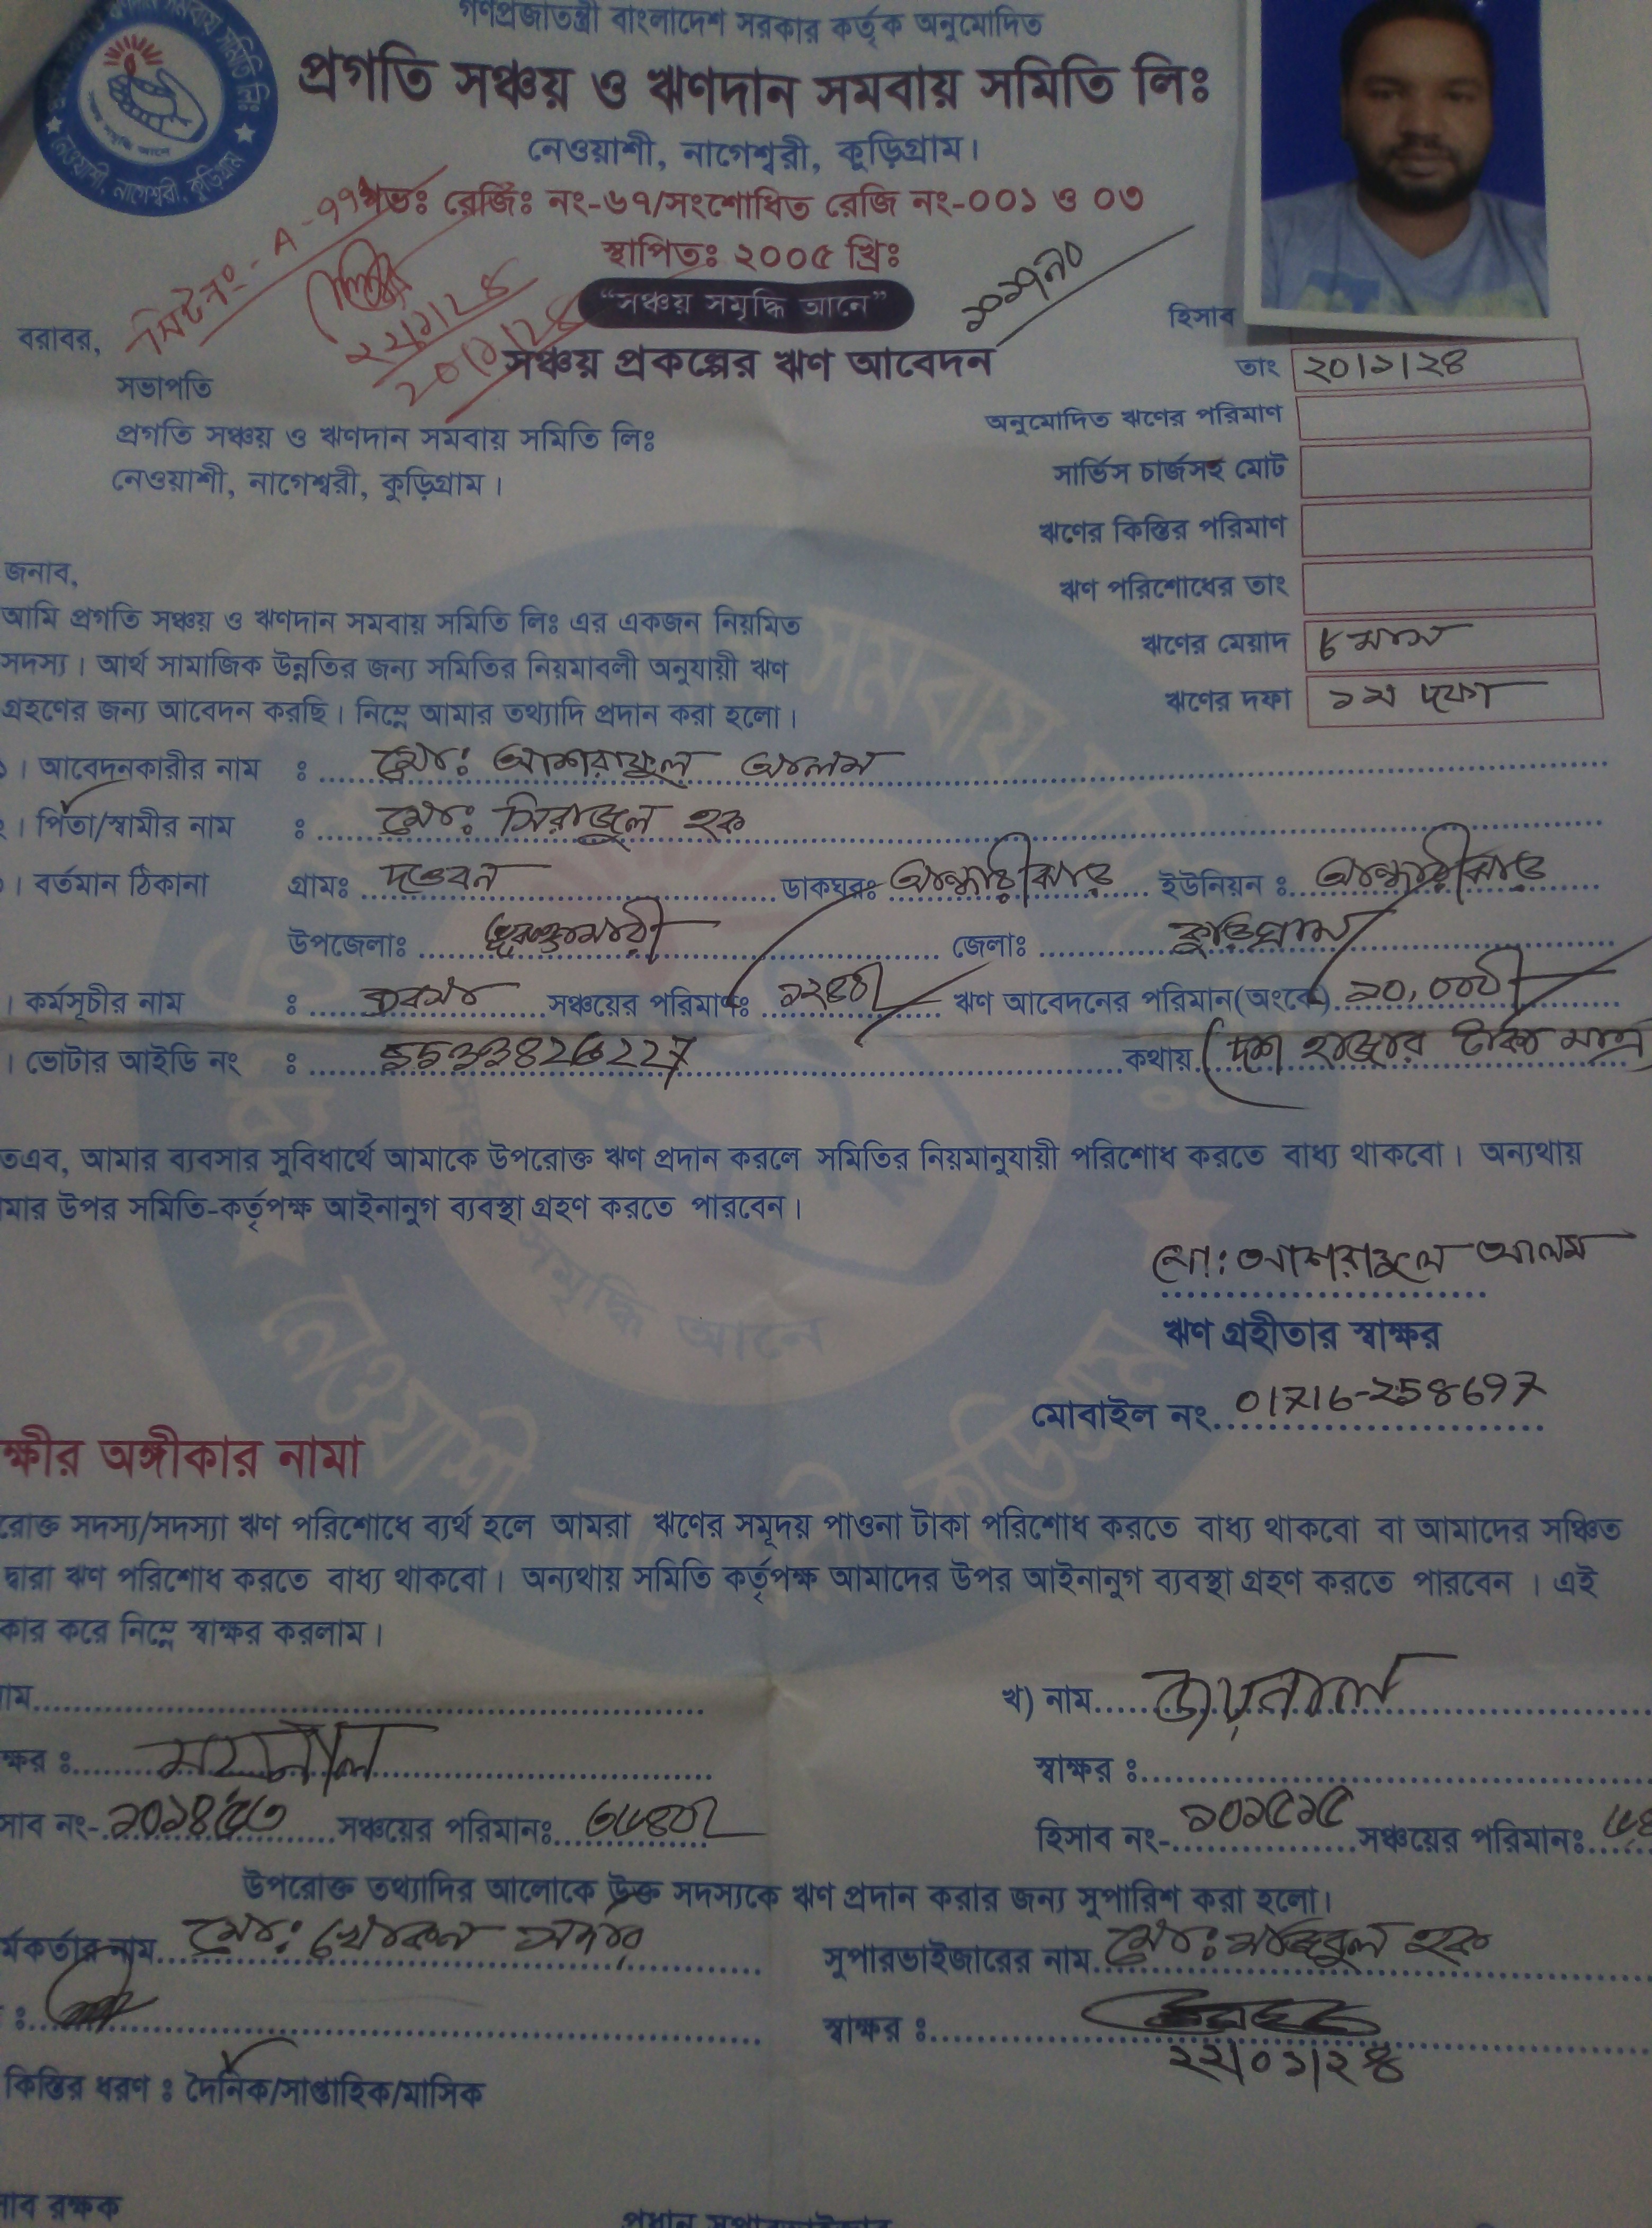 গণপ্রজাতন্ত্রী বাংলাদেশ সরকার কর্তৃক অনুমোদিত
প্রগতি সঞ্চয় ও ঋণদান সমবায় সমিতি লিঃ
নেওয়াশী, নাগেশ্বরী, কুড়িগ্রাম।
গভঃ রেজিঃ নং-৬৭/সংশোধিত রেজি নং-০০১ ও ০৩
স্থাপিতঃ ২০০৫ খ্রিঃ
“সঞ্চয় সমৃদ্ধি আনে”
সঞ্চয় প্রকল্পের ঋণ আবেদন
হিসাব
বরাবর,
সভাপতি
প্রগতি সঞ্চয় ও ঋণদান সমবায় সমিতি লিঃ
নেওয়াশী, নাগেশ্বরী, কুড়িগ্রাম।
তাং ২০/১/২৪
অনুমোদিত ঋণের পরিমাণ
সার্ভিস চার্জসহ মোট
ঋণের কিস্তির পরিমাণ
ঋণ পরিশোধের তাং
ঋণের মেয়াদ ৮ মাস
ঋণের দফা ১ম দফা
জনাব,
আমি প্রগতি সঞ্চয় ও ঋণদান সমবায় সমিতি লিঃ এর একজন নিয়মিত
সদস্য। আর্থ সামাজিক উন্নতির জন্য সমিতির নিয়মাবলী অনুযায়ী ঋণ
গ্রহণের জন্য আবেদন করছি। নিম্নে আমার তথ্যাদি প্রদান করা হলো।
। আবেদনকারীর নাম : মো: আশরাফুল আলম
। পিতা/স্বামীর নাম : মো: সিরাজুল হক
। বর্তমান ঠিকানা গ্রামঃ ডাকঘরঃ আন্ধারীঝাড় ইউনিয়ন : আন্ধারীঝাড়
উপজেলাঃ ভূরুঙ্গামারী জেলাঃ কুড়িগ্রাম
। কর্মসূচীর নাম : সঞ্চয়ের পরিমাণঃ ঋণ আবেদনের পরিমান(অংকে) ১০,০০০/
। ভোটার আইডি নং : 5533826227 কথায় (দশ হাজার টাকা মাত্র
তএব, আমার ব্যবসার সুবিধার্থে আমাকে উপরোক্ত ঋণ প্রদান করলে সমিতির নিয়মানুযায়ী পরিশোধ করতে বাধ্য থাকবো। অন্যথায়
মার উপর সমিতি-কর্তৃপক্ষ আইনানুগ ব্যবস্থা গ্রহণ করতে পারবেন।
মো: আশরাফুল আলম
ঋণ গ্রহীতার স্বাক্ষর
মোবাইল নং 01716-258697
ক্ষীর অঙ্গীকার নামা
রোক্ত সদস্য/সদস্যা ঋণ পরিশোধে ব্যর্থ হলে আমরা ঋণের সমূদয় পাওনা টাকা পরিশোধ করতে বাধ্য থাকবো বা আমাদের সঞ্চিত
দ্বারা ঋণ পরিশোধ করতে বাধ্য থাকবো। অন্যথায় সমিতি কর্তৃপক্ষ আমাদের উপর আইনানুগ ব্যবস্থা গ্রহণ করতে পারবেন । এই
কার করে নিম্নে স্বাক্ষর করলাম।
াম খ) নাম জয়নাল
ক্ষর : ময়নাল স্বাক্ষর :
সাব নং- সঞ্চয়ের পরিমানঃ হিসাব নং- ১০১৫১৫ সঞ্চয়ের পরিমানঃ
উপরোক্ত তথ্যাদির আলোকে উক্ত সদস্যকে ঋণ প্রদান করার জন্য সুপারিশ করা হলো।
র্মকর্তার নাম মো: খোকন সুপারভাইজারের নাম মো: মজিবুল হক
: স্বাক্ষর :
২২/০১/২৪
কিস্তির ধরণ : দৈনিক/সাপ্তাহিক/মাসিক
াব রক্ষক
প্রধান সুপারভাইজার